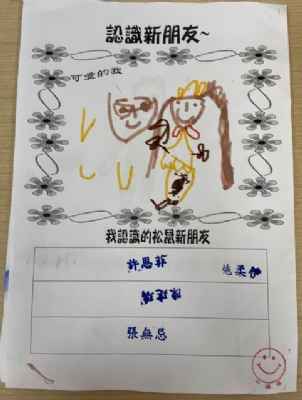 認識新朋友~
可愛的我
我認識的松鼠新朋友
許恩菲
張無忌